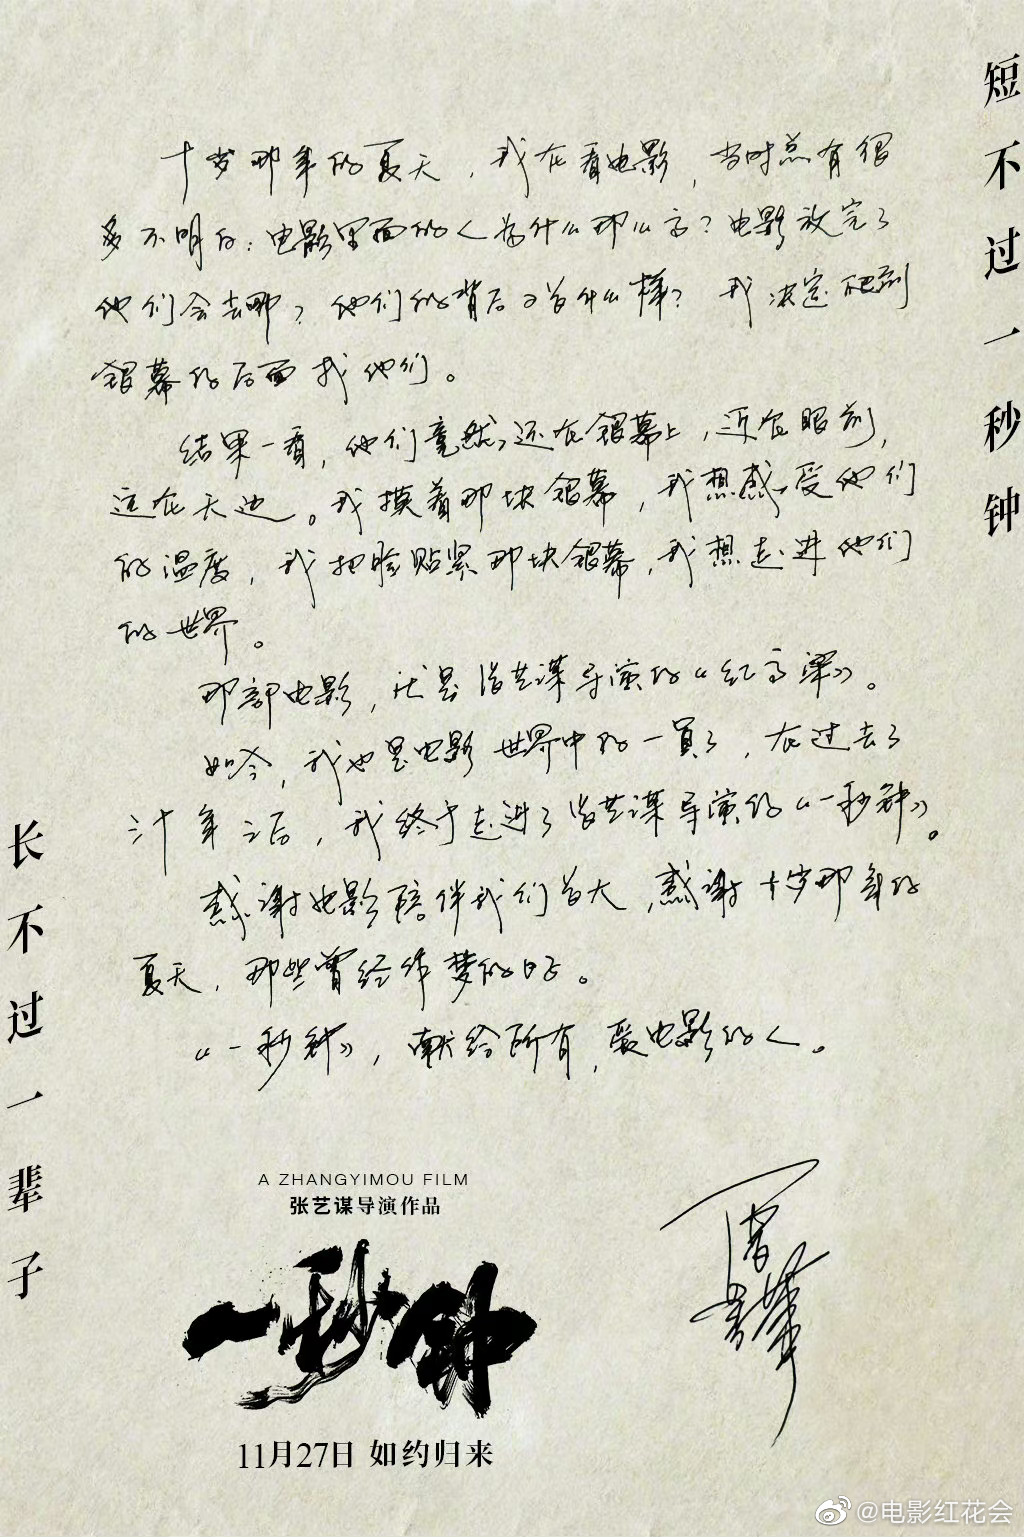 短不过一秒钟
十岁那年的夏天，我在看电影，当时总有很
多不明白：电影里面的人为什么那么高？电影放完了
他们会去哪？他们的背后又是什么样？我决定爬到
银幕的后面找他们。
结果一看，他们竟然还在银幕上，近在眼前，
远在天边。我摸着那块银幕，我想感受他们
的温度，我把脸贴紧那块银幕，我想走进他们
的世界。
那部电影，就是张艺谋导演的《红高粱》。
如今，我也是电影世界中的一員了，在过去了
三十年之后，我终于走进了张艺谋导演的《一秒钟》。
感谢电影陪伴我们长大，感谢十岁那年的
夏天，那些曾经作梦的日子。
《一秒钟》，献给所有爱电影的人。
长不过一辈子
A ZHANGYIMOU FILM
张艺谋导演作品
一秒钟
11月27日 如约归来
@电影红花会